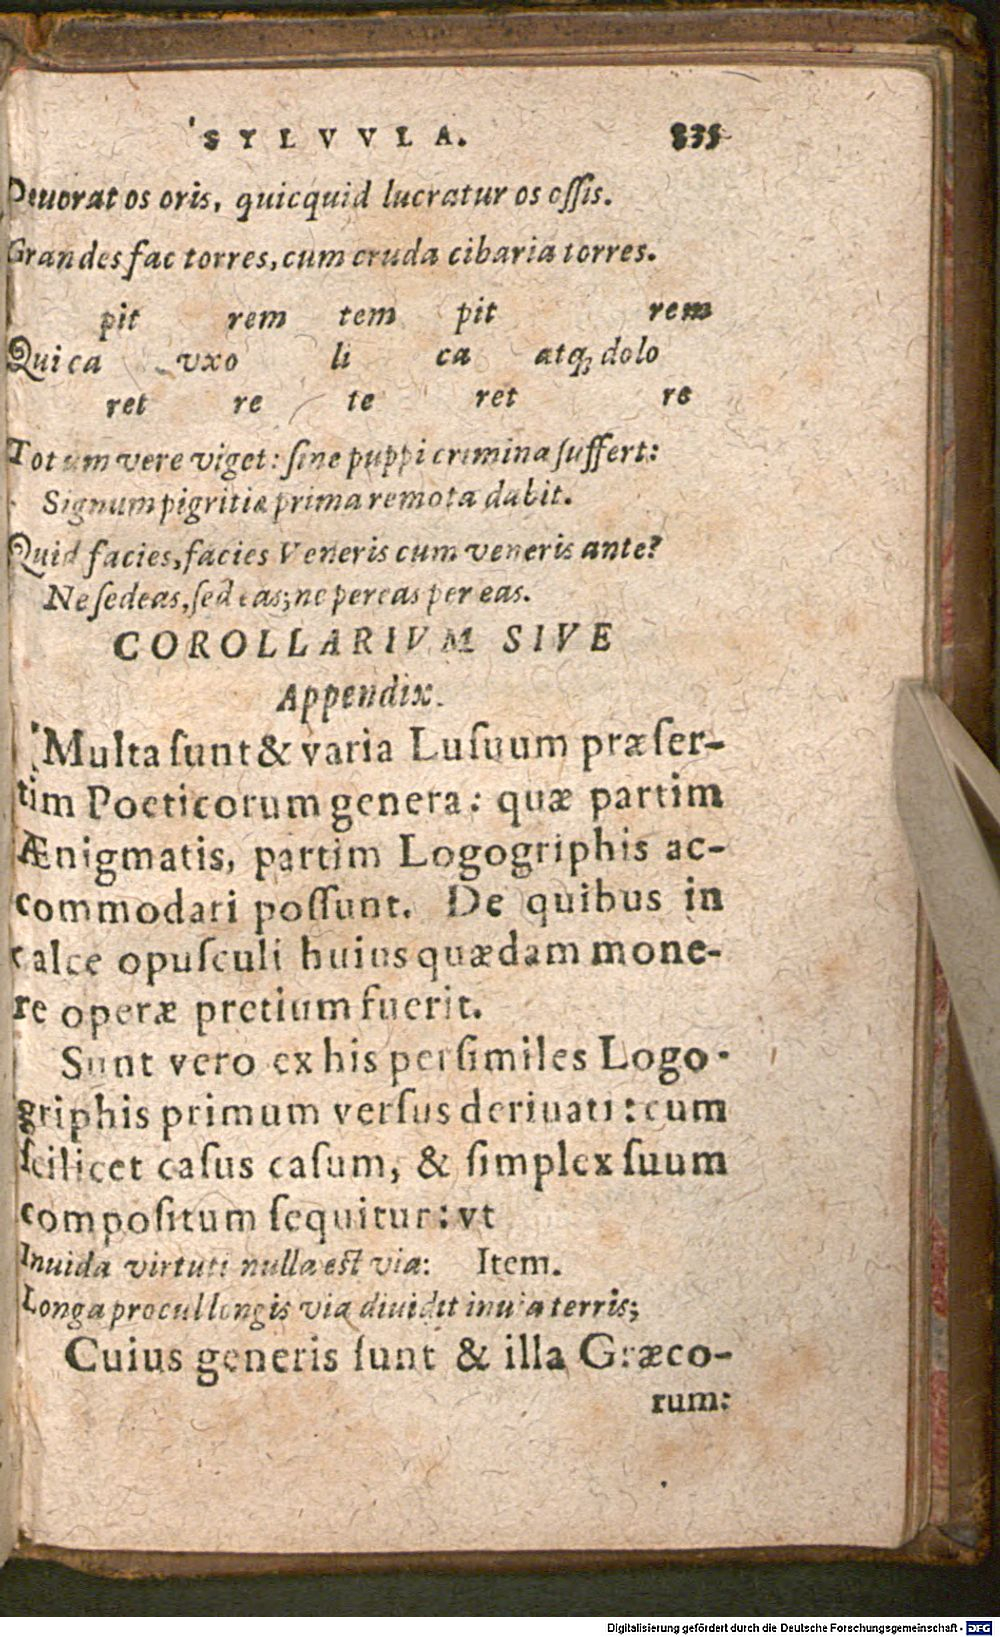 SYLVVLA. 835
Deuorat os oris, quicquid lucratur os ossis.
Grandes fac torres, cum cruda cibaria torres.
pit rem tem pit rem
Qui ca vxo li ca atq; dolo
ret re te ret re
Totum vere viget: ſine puppi crimina ſuffert:
Signum pigritiæ prima remota dabit.
Quid facies, facies Veneris cum veneris ante?
Ne ſedeas, ſed eas; ne pereas per eas.
COROLLARIVM SIVE
Appendix.
Multa ſunt & varia Luſuum præſer-
tim Poeticorum genera: quæ partim
Ænigmatis, partim Logogriphis ac-
commodari poſſunt. De quibus in
calce opuſculi huius quædam mone-
re operæ pretium fuerit.
Sunt vero ex his perſimiles Logo-
griphis primum verſus deriuati: cum
ſcilicet caſus caſum, & ſimplex ſuum
compoſitum ſequitur: vt
Inuida virtuti nulla eſt via: Item.
Longa procul longis via diuidit inuia terris;
Cuius generis ſunt & illa Græco-
rum:
Digitalisierung gefördert durch die Deutsche Forschungsgemeinschaft - DFG